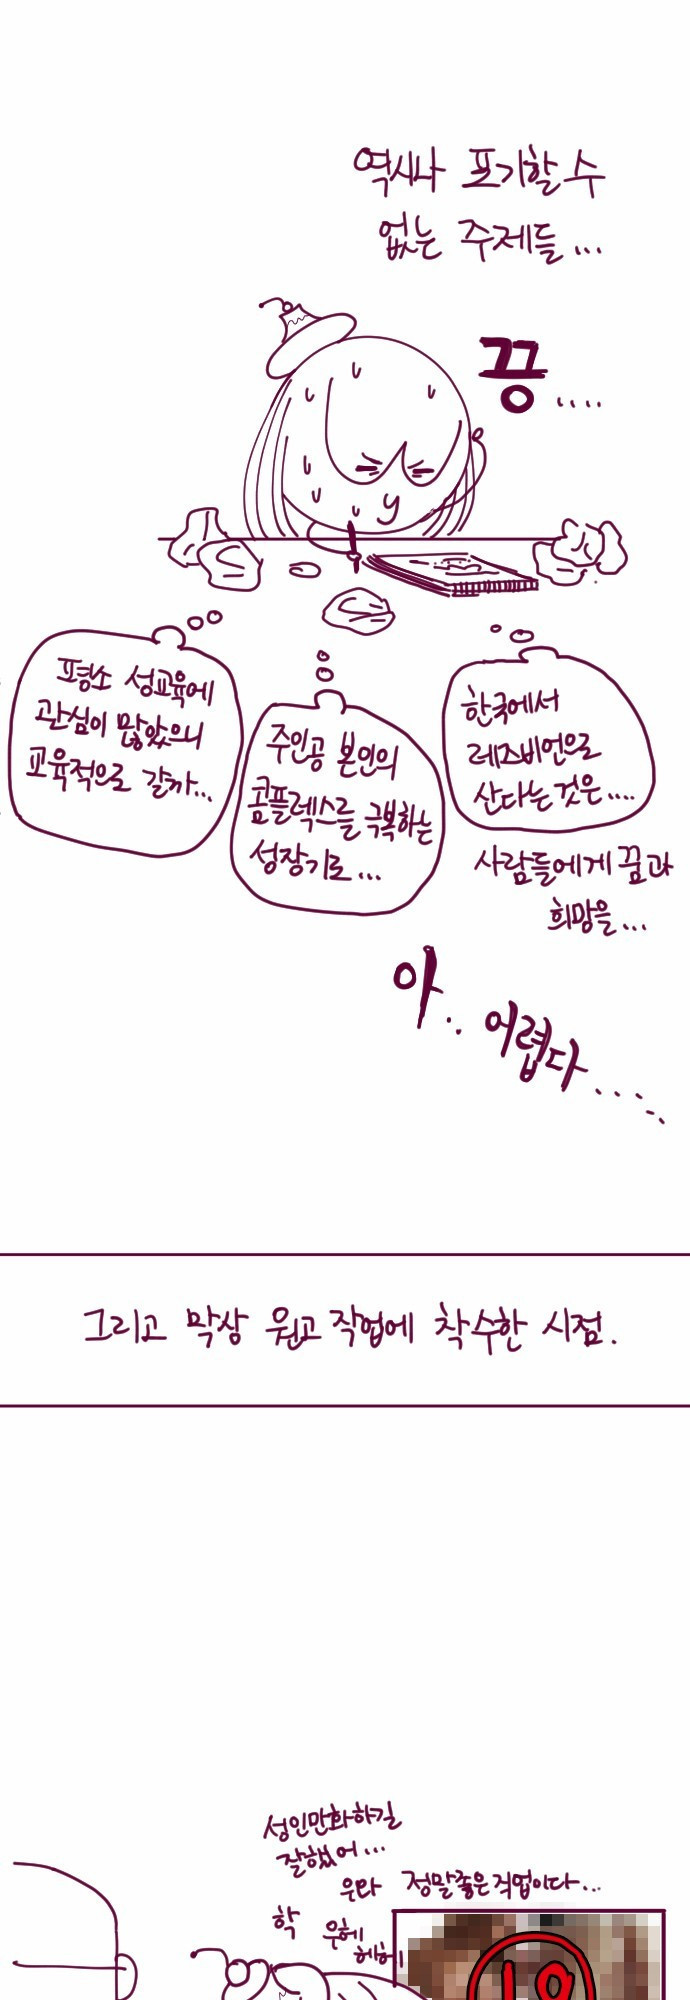 역시나 포기할 수
없는 주제들...
끙....
평소 성교육에
관심이 많았으니
교육적으로 갈까...
주인공 본인의
콤플렉스를 극복하는
성장기로...
한국에서
레즈비언으로
산다는 것은....
사람들에게 꿈과
희망을...
아.. 어렵다.....
그리고 막상 원고 작업에 착수한 시점.
성인만화하길
잘했어...
우와 정말 좋은 직업이다...
학
우헤
헤헤
19